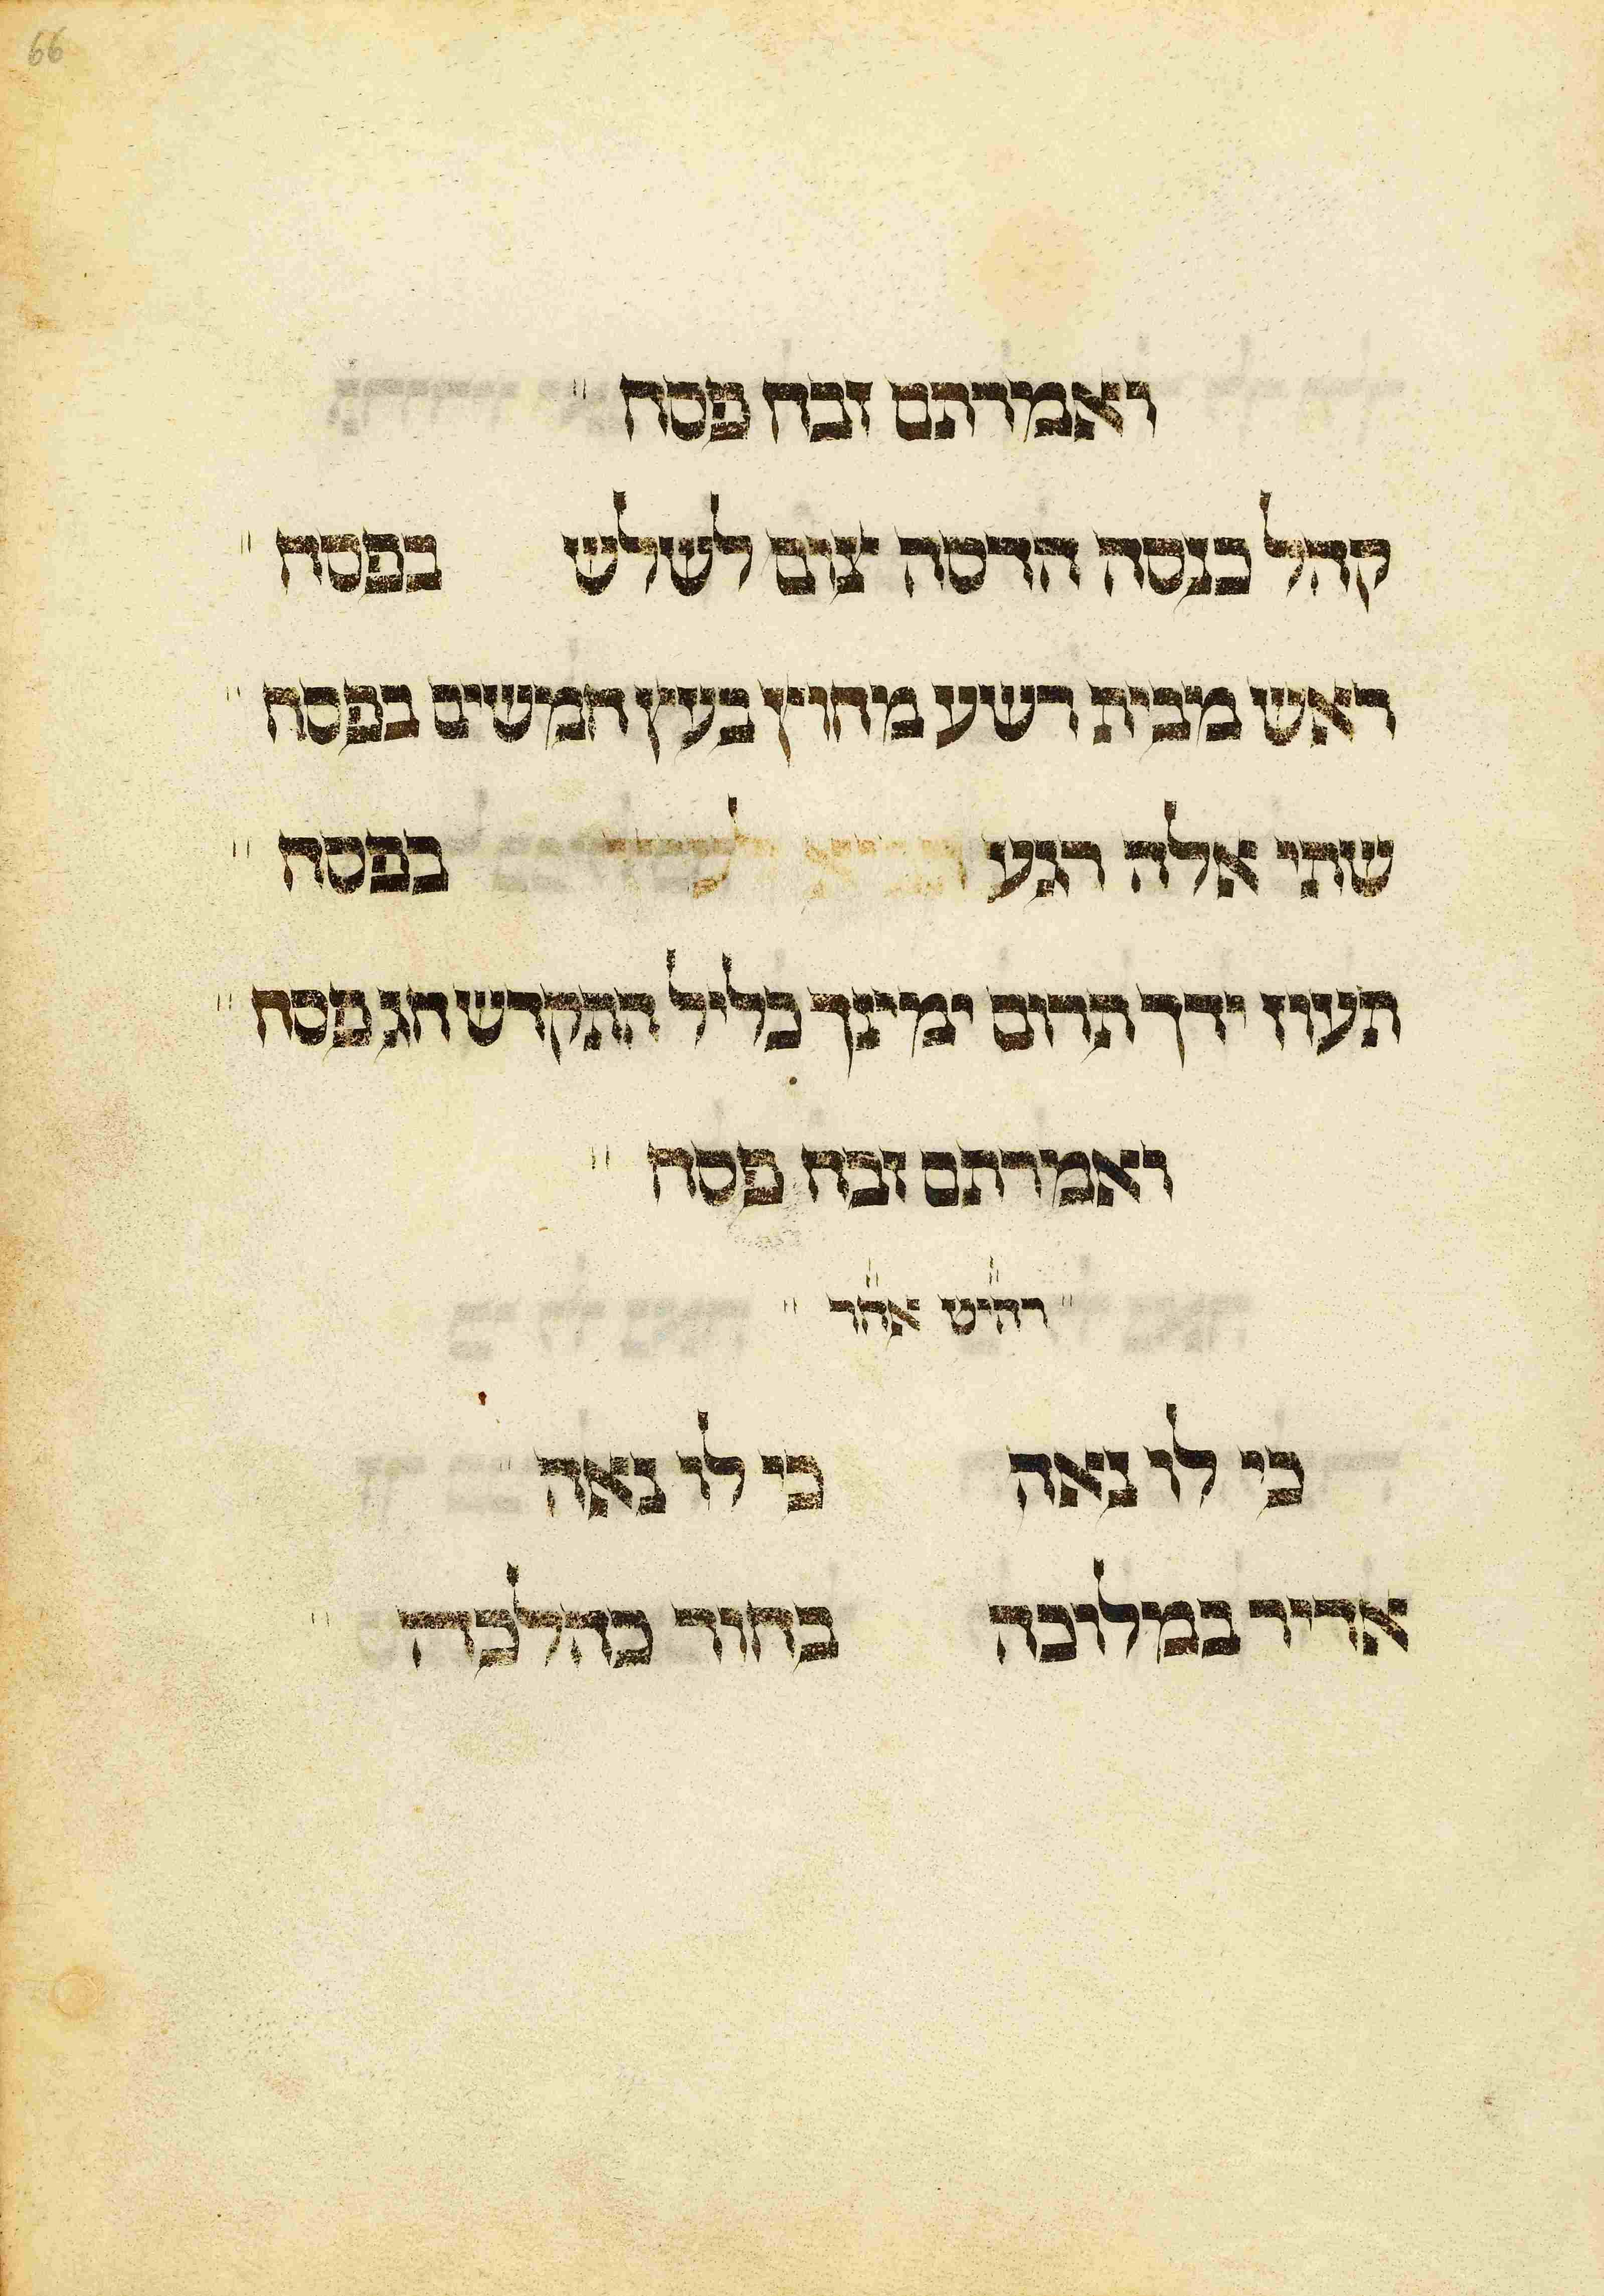 66
ואמרתם זבח פסח "
קהל כנסה הדסה צום לשלש בפסח "
ראש מבית רשע מחוץ בעץ חמשים בפסח "
שתי אלה רגע בפסח "
תעוז ידך תרום ימינך כליל התקדש חג פסח "
ואמרתם זבח פסח "
" רהיט אחר "
כי לו נאה כי לו נאה "
אדיר במלוכה בחור כהלכה "